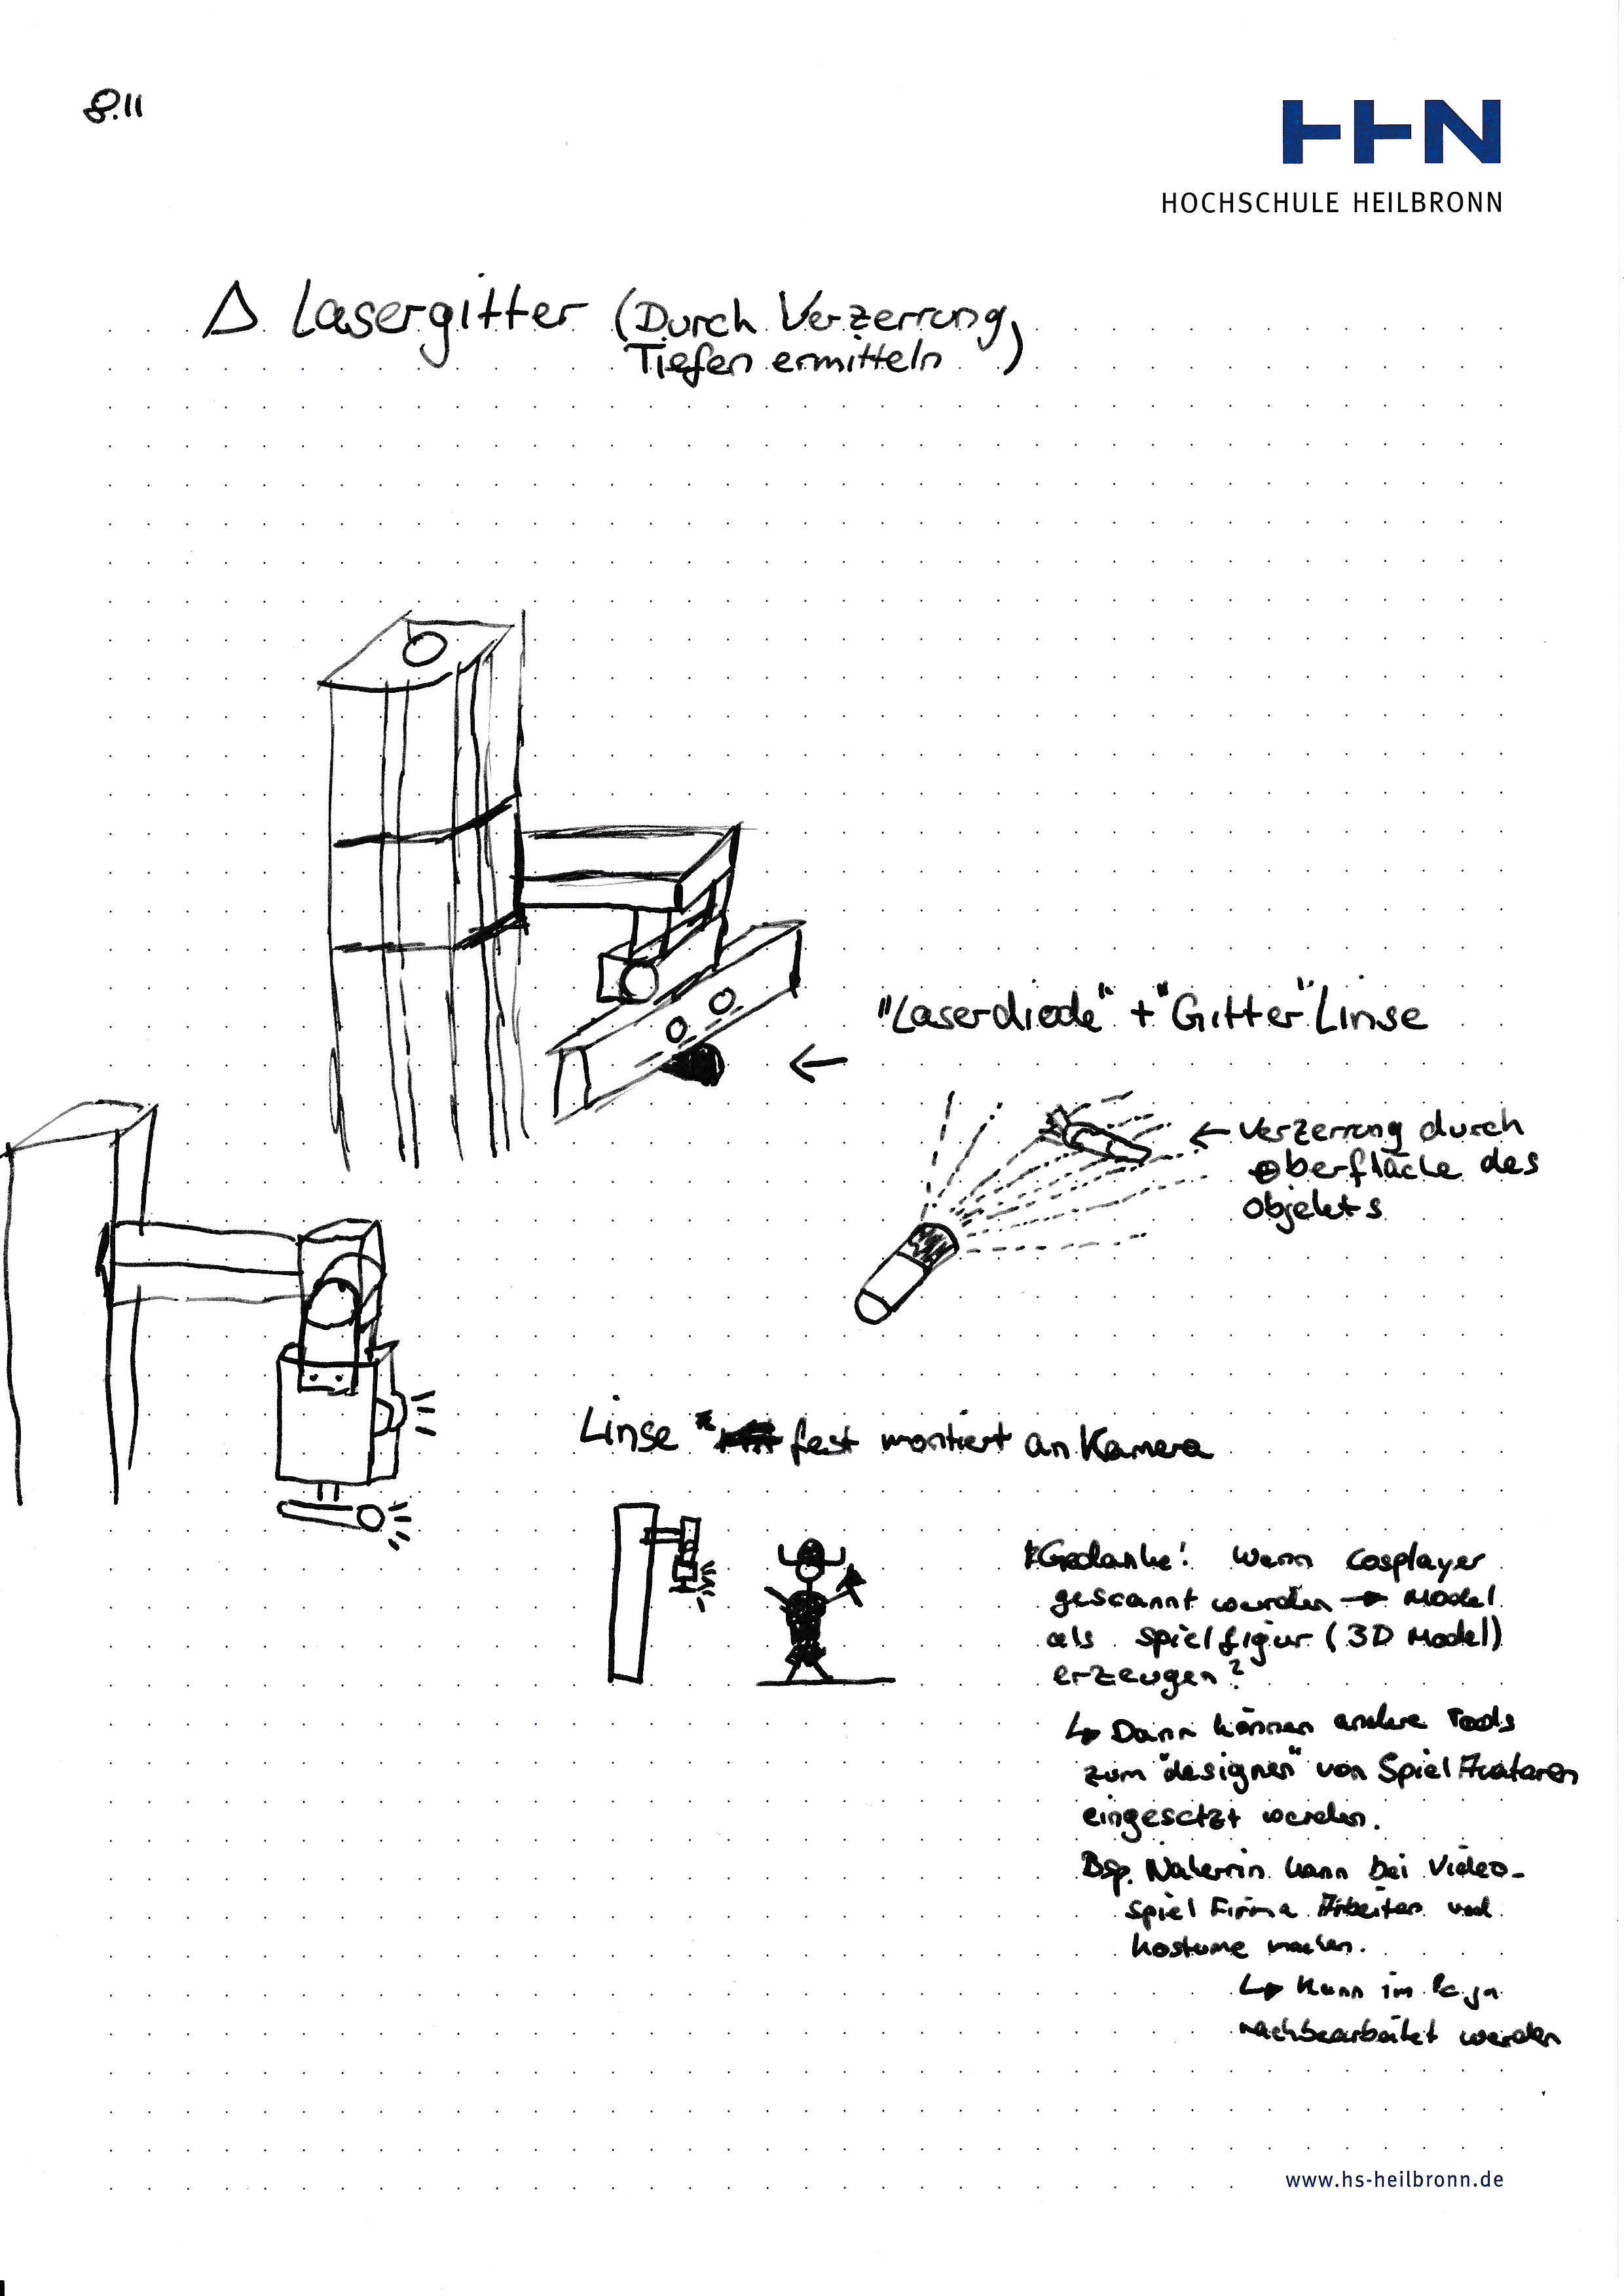 8.11
HHN
HOCHSCHULE HEILBRONN
Δ Lasergitter (Durch Verzerrung,
Tiefen ermitteln)
"Laserdiode" + "Gitter" Linse
←
← Verzerrung durch
Oberfläche des
Objekts
Linse fest montiert an Kamera
*Gedanke! Wenn Cosplayer
gescannt werden → Model
als Spielfigur (3D Model)
erzeugen?
↳ Dann können andere Tools
zum "designen" von Spiel Avataren
eingesetzt werden.
Bsp. kann bei Video-
spiel Firma Arbeiten und
Kostüme machen.
↳ Kann im
nachbearbeitet werden
www.hs-heilbronn.de